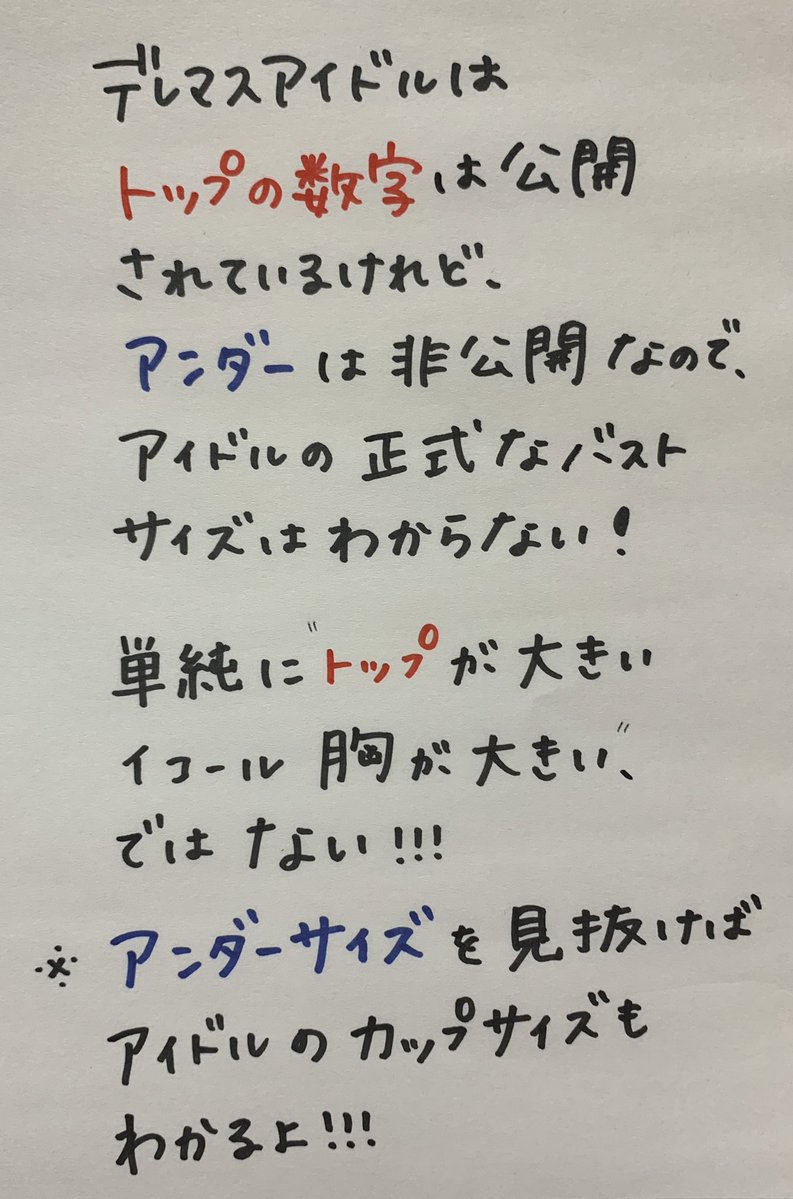 デレマスアイドルは
トップの数字は公開
されているけれど、
アンダーは非公開なので、
アイドルの正式なバスト
サイズはわからない!
単純に"トップが大きい
イコール胸が大きい"、
ではない!!!
※アンダーサイズを見抜けば
アイドルのカップサイズも
わかるよ!!!